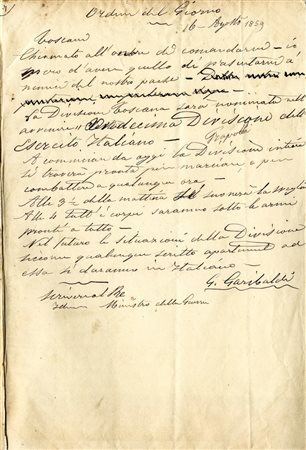 Ordine del Giorno
16 - Agosto 1859
Toscani
Chiamato all'onore di comandarvi - io
spero d'avere quello di presentarvi a'
nemici del nostro paese -
La Divisione Toscana sarà nominata nell'
avvenire "Undecima Divisione dell'
Esercito Italiano -
A cominciar da oggi la Divisione intiera
si troverà pronta per marciare o per
combattere a qualunque ora -
Alle 3 ½ della mattina si suonerà la sveglia
Alle 4 tutti i corpi saranno sotto le armi
pronti a tutto -
Nel futuro le situazioni della Divisione
siccome qualunque scritto apartenente ad
essa si daranno in Italiano -
G. Garibaldi
Scriver al Re
Idem Ministro della Guerra